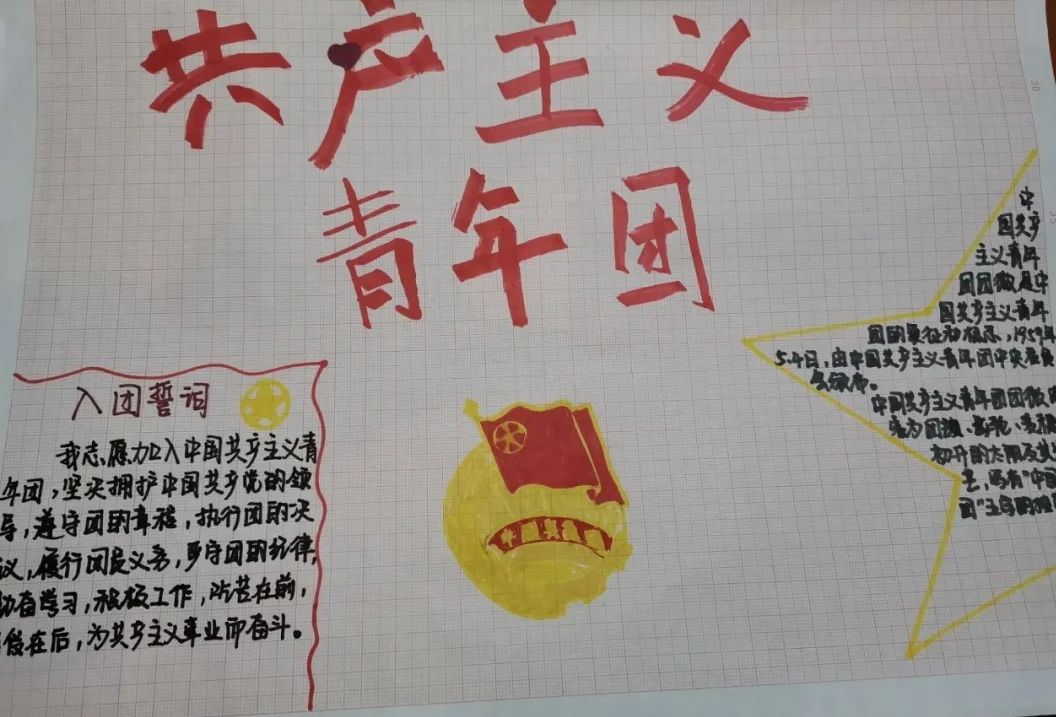 共产主义
青年团
入团誓词
我志愿加入中国共产主义青
年团,坚决拥护中国共产党的领
导,遵守团的章程,执行团的决
议,履行团员义务,严守团的纪律,
勤奋学习,积极工作,吃苦在前,
在后,为共产主义事业而奋斗。
中国共青团
中
国共产
主义青年
团团徽是中
国共产主义青年
团的象征和标志,1959年
5.4日,由中国共产主义青年团中央委员
会颁布。
中国共产主义青年团团徽
为团旗、齿轮、麦穗
初升的太阳及其
写有“中国
团”五字的